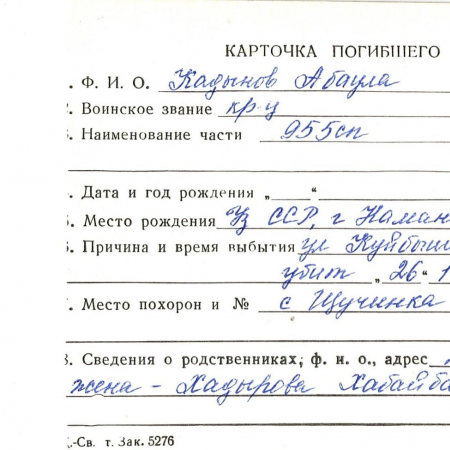 КАРТОЧКА ПОГИБШЕГО
. Ф. И. О. Кадынов Абаула
. Воинское звание кр-ц
. Наименование части 955сп
. Дата и год рождения „ “
. Место рождения Уз ССР, г Наман
. Причина и время выбытия ул Куйбыш
убит „26“ 1
. Место похорон и № с Щучинка
8. Сведения о родственниках, ф. и. о., адрес
жена - Хадырова Хабайба
.-Св. т. Зак. 5276